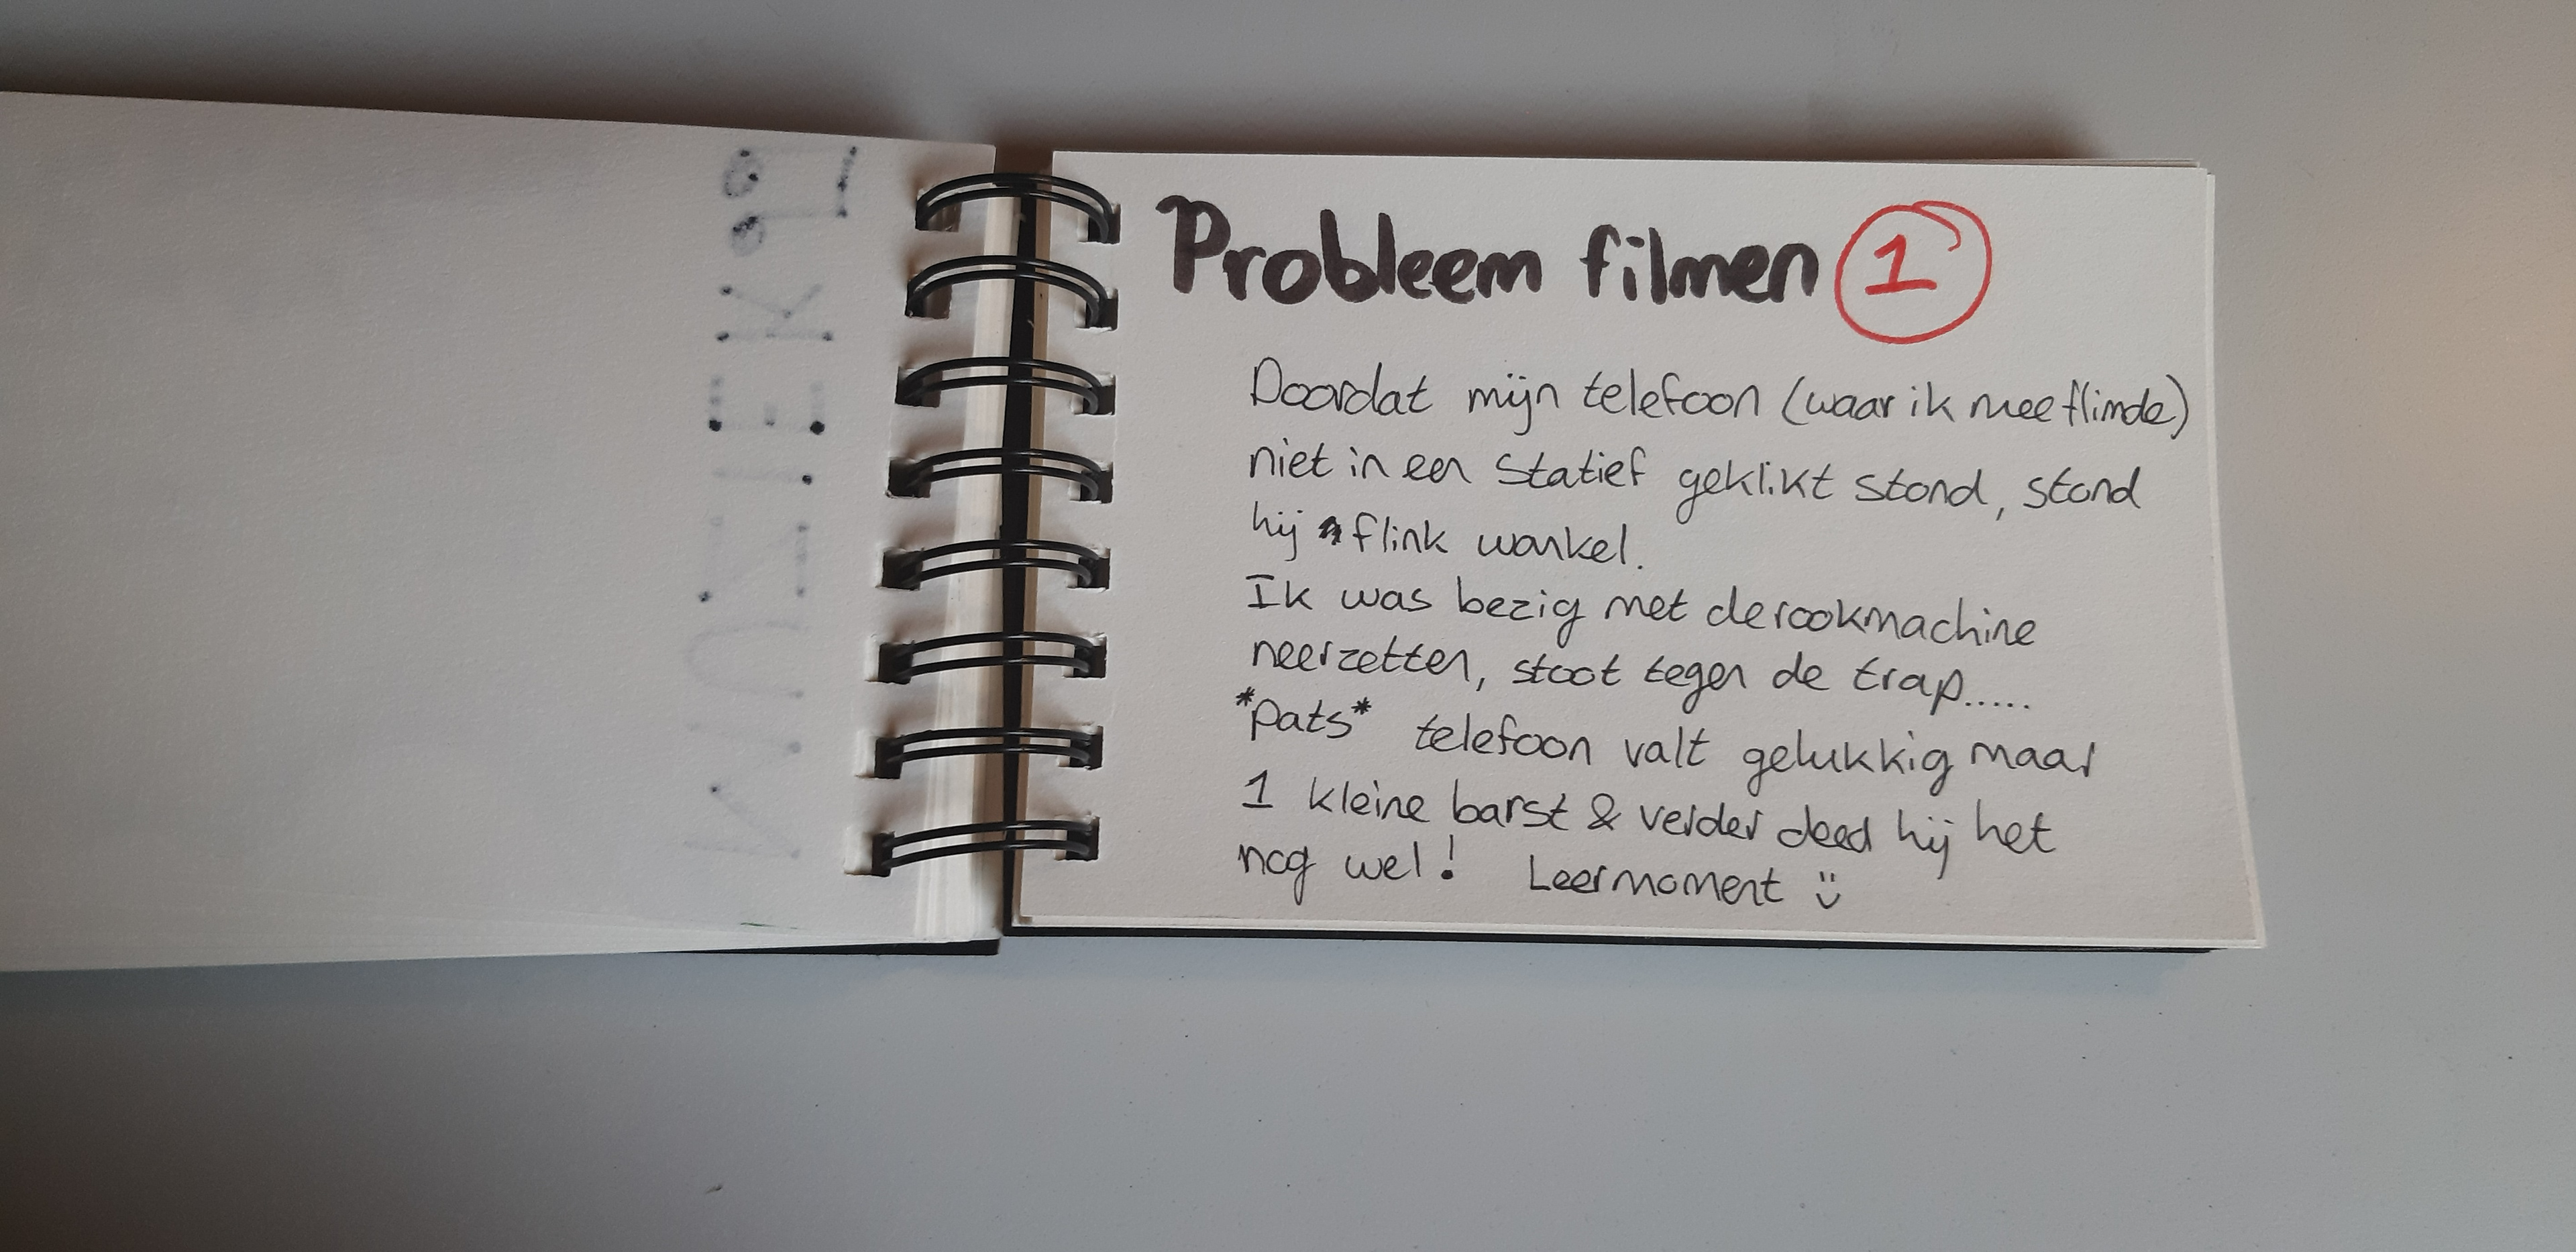 Probleem filmen 1
Doordat mijn telefoon (waar ik mee flimde)
niet in een statief geklikt stond, stond
hij flink wankel.
Ik was bezig met de rookmachine
neerzetten, stoot tegen de trap.....
*pats* telefoon valt gelukkig maar
1 kleine barst & verder deed hij het
nog wel! Leermoment :)